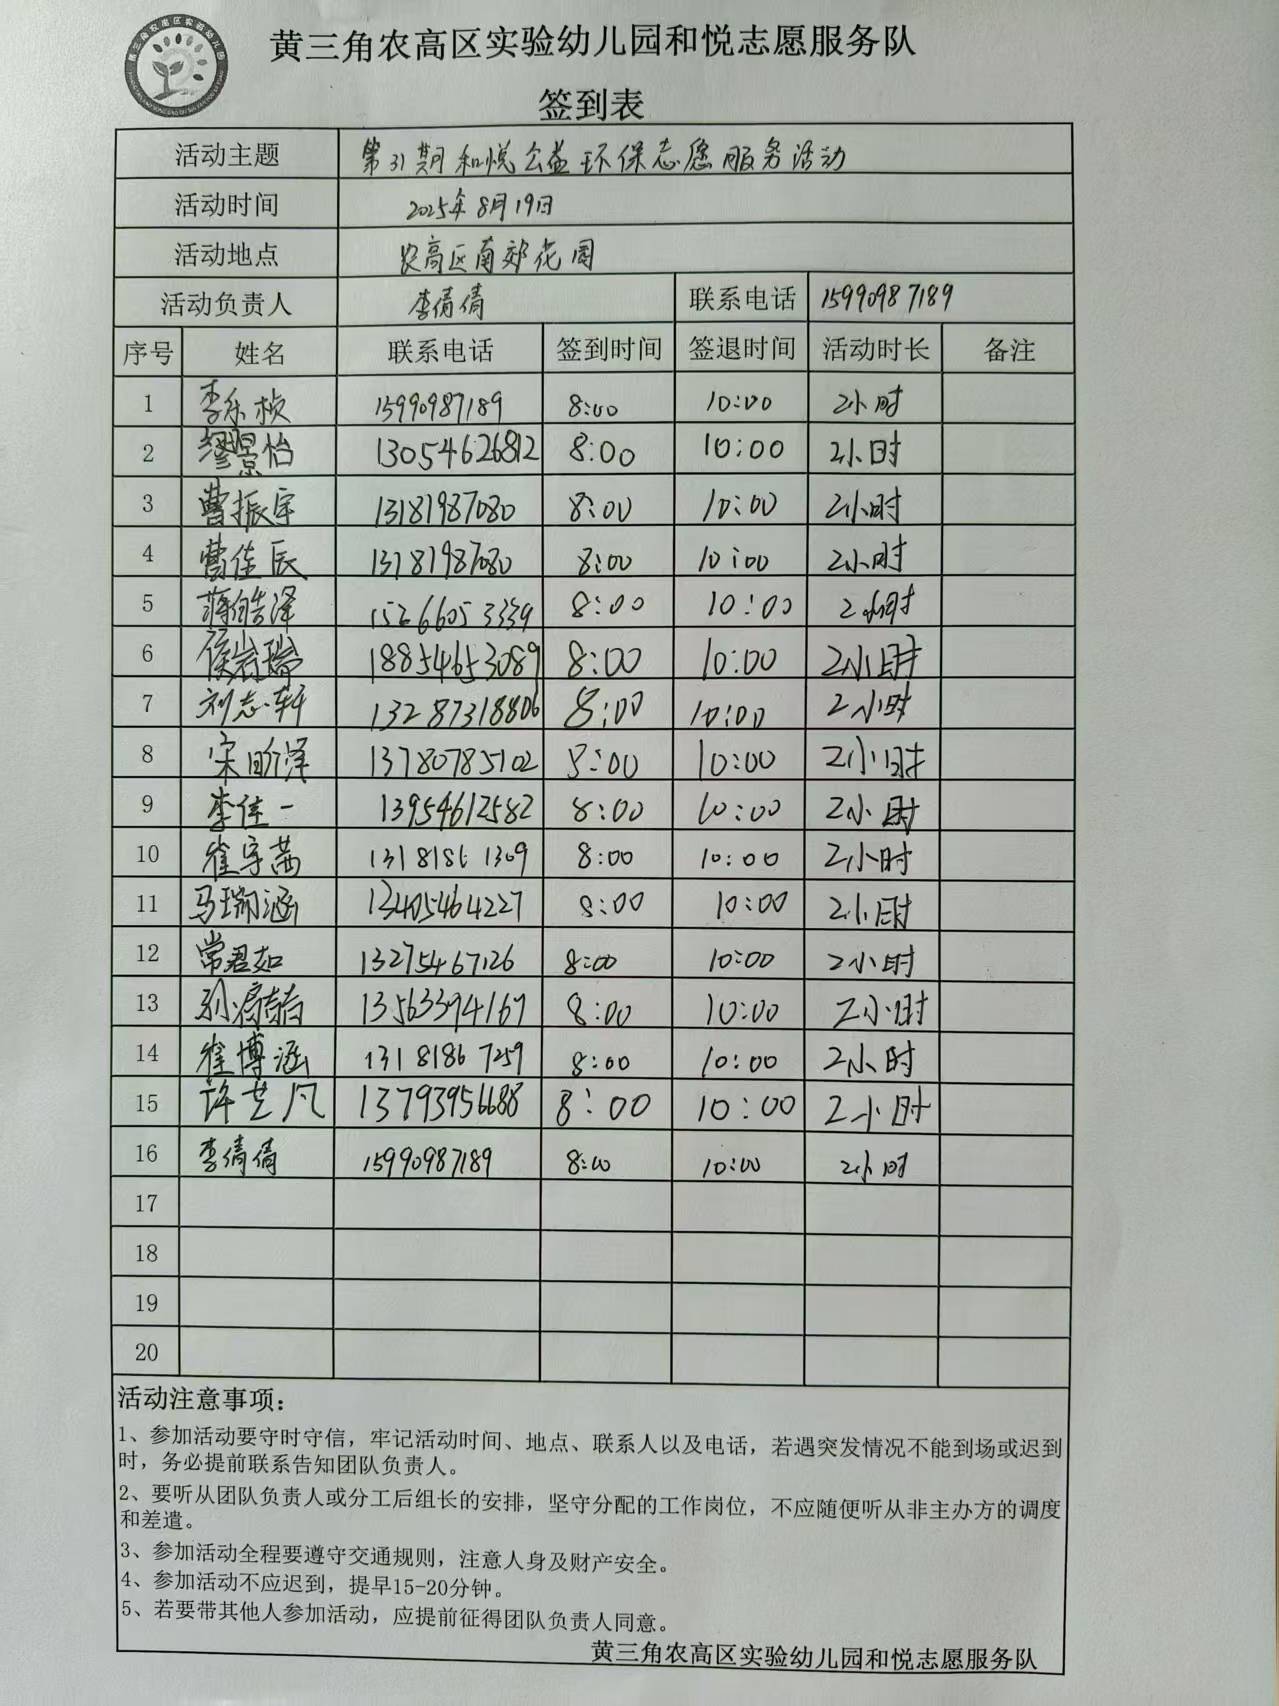 黄三角农高区实验幼儿园和悦志愿服务队
签到表
活动主题 第31期和悦公益环保志愿服务活动
活动时间 2025年8月19日
活动地点 农高区南郊花园
活动负责人 李倩倩 联系电话 15990987189
序号 姓名 联系电话 签到时间 签退时间 活动时长 备注
1 李乐桢 15990987189 8:00 10:00 2小时
2 缪景怡 13054626812 8:00 10:00 2小时
3 曹振宇 13181987080 8:00 10:00 2小时
4 曹佳辰 13181987080 8:00 10:00 2小时
5 蒋皓泽 15266053339 8:00 10:00 2小时
6 侯岩瑞 18854653089 8:00 10:00 2小时
7 刘志轩 13287318806 8:00 10:00 2小时
8 宋昕泽 13780785102 8:00 10:00 2小时
9 李佳一 13954612582 8:00 10:00 2小时
10 崔宇茜 13181861309 8:00 10:00 2小时
11 马瑞涵 13405464227 8:00 10:00 2小时
12 常君如 13275467126 8:00 10:00 2小时
13 孙 13563394167 8:00 10:00 2小时
14 崔博涵 13181867259 8:00 10:00 2小时
15 许艺凡 13793956688 8:00 10:00 2小时
16 李倩倩 15990987189 8:00 10:00 2小时
17
18
19
20
活动注意事项：
1、参加活动要守时守信，牢记活动时间、地点、联系人以及电话，若遇突发情况不能到场或迟到
时，务必提前联系告知团队负责人。
2、要听从团队负责人或分工后组长的安排，坚守分配的工作岗位，不应随便听从非主办方的调度
和差遣。
3、参加活动全程要遵守交通规则，注意人身及财产安全。
4、参加活动不应迟到，提早15-20分钟。
5、若要带其他人参加活动，应提前征得团队负责人同意。
黄三角农高区实验幼儿园和悦志愿服务队